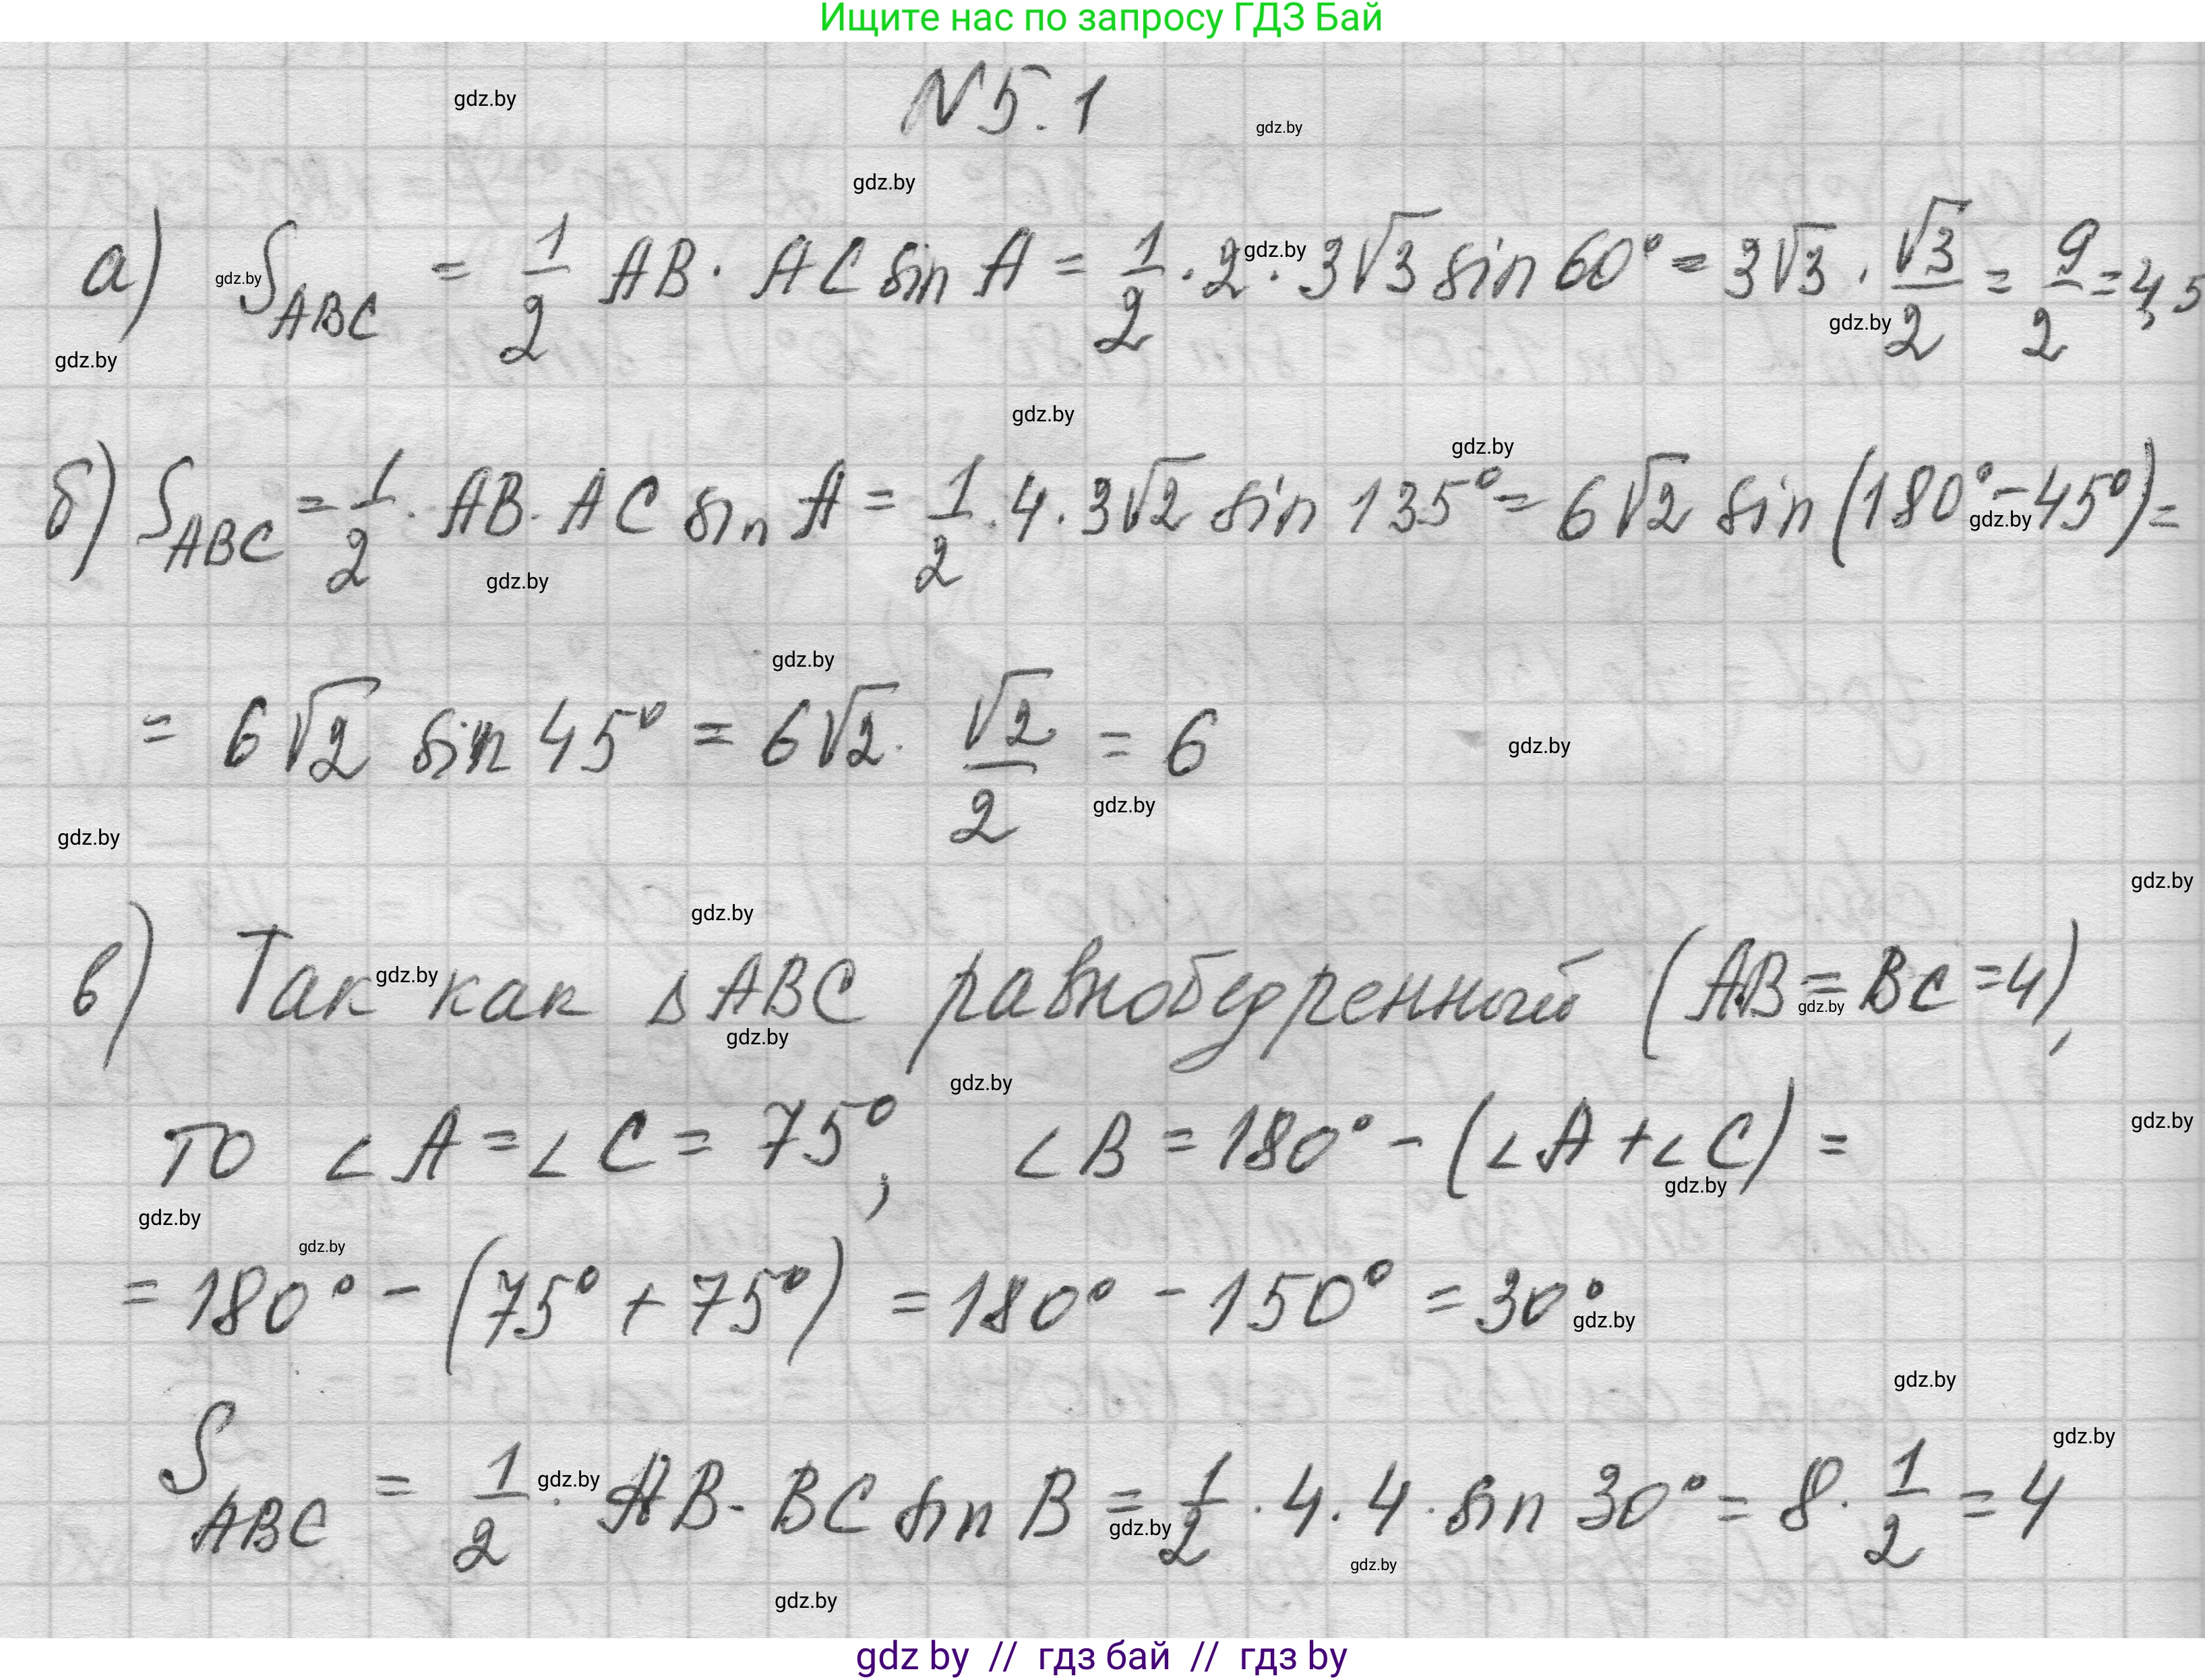 Ищите нас по запросу ГДЗ Бай
N 5.1
а) S_ABC = 1/2 AB · AC sin A = 1/2 · 2 · 3√3 sin 60° = 3√3 · √3/2 = 9/2 = 4,5
б) S_ABC = 1/2 · AB · AC sin A = 1/2 · 4 · 3√2 sin 135° = 6√2 sin (180° - 45°) =
= 6√2 sin 45° = 6√2 · √2/2 = 6
в) Так как △ABC равнобедренный (AB = BC = 4),
то ∠A = ∠C = 75°, ∠B = 180° - (∠A + ∠C) =
= 180° - (75° + 75°) = 180° - 150° = 30°
S_ABC = 1/2 · AB · BC sin B = 1/2 · 4 · 4 · sin 30° = 8 · 1/2 = 4
gdz by // гдз бай // гдз by